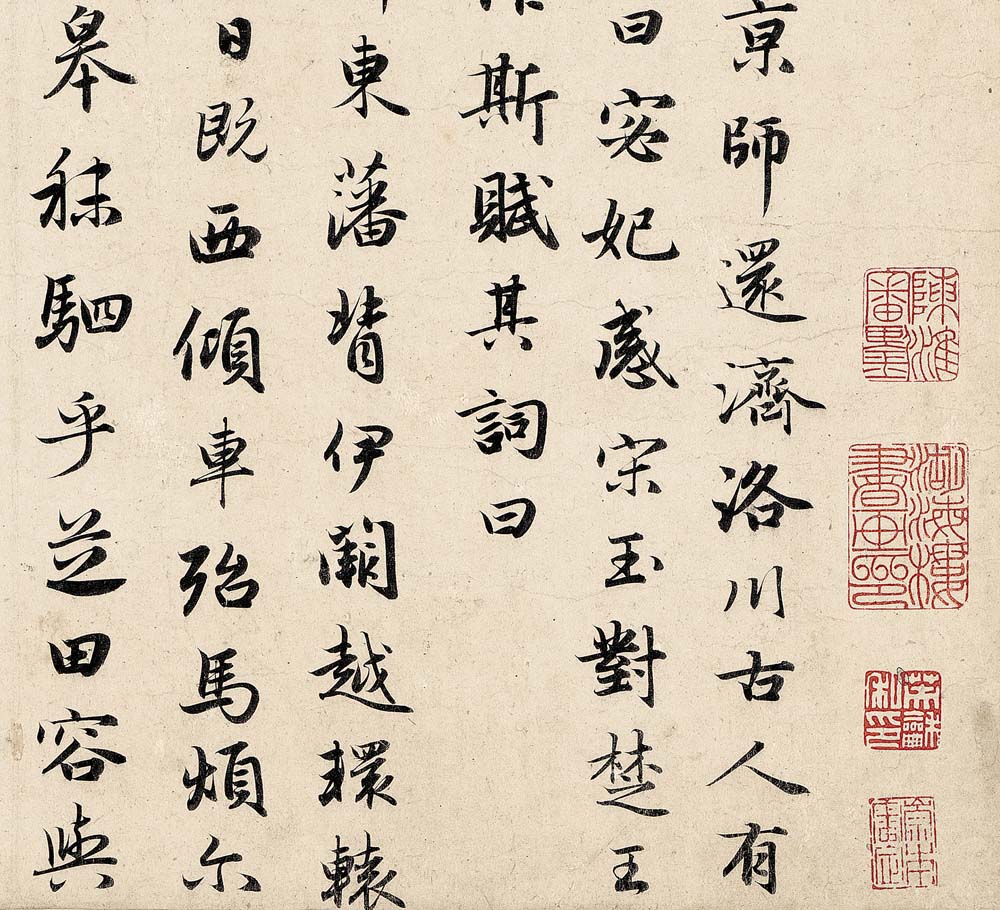 京師還濟洛川古人有
曰宓妃感宋玉對楚王
斯賦其詞曰
東藩背伊闕越轘轅
日既西傾車殆馬煩尔
皋秣駟乎芝田容與